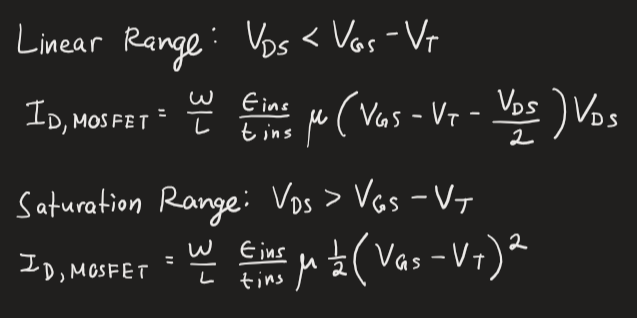 Linear Range: V_DS < V_GS - V_T
I_D,MOSFET = W/L ϵ_ins/t_ins μ (V_GS - V_T - V_DS/2) V_DS
Saturation Range: V_DS > V_GS - V_T
I_D,MOSFET = W/L ϵ_ins/t_ins μ 1/2 (V_GS - V_T)²